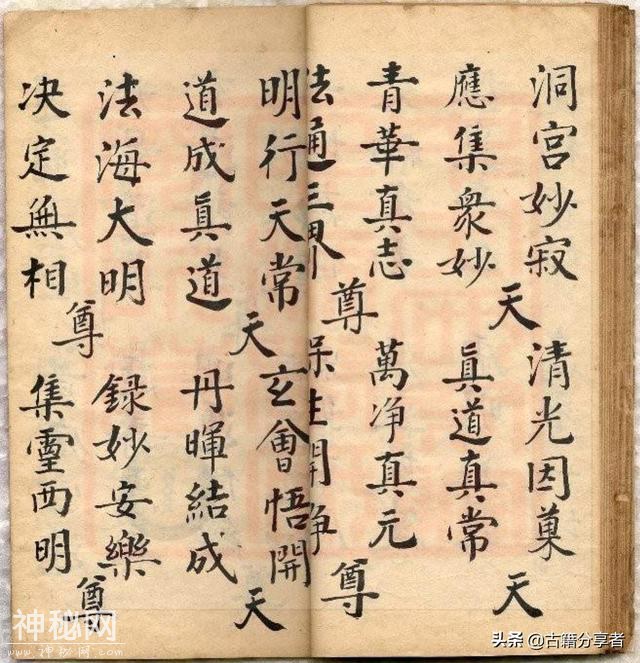 洞宫妙寂 清光因菓
天 天
應集衆妙 眞道真常
青華真志 萬净真元
尊 尊
法通三界 保生開净
明行天常 玄會悟開
天 天
道成眞道 丹暉結成
法海大明 録妙安樂
尊 尊
决定無相 集靈西明
神秘网
www.神秘网.com
头条 @古籍分享者